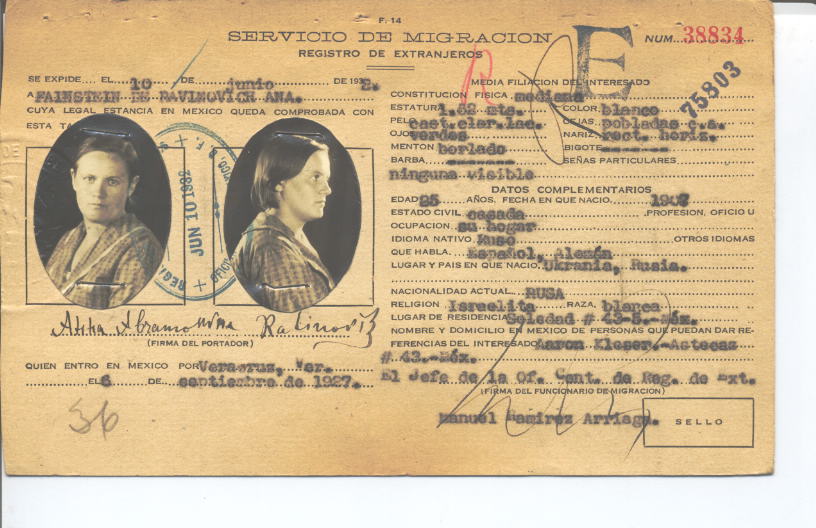 F. 14
SERVICIO DE MIGRACION
REGISTRO DE EXTRANJEROS
NUM. 38834
E
75803
SE EXPIDE EL 10 DE junio DE 193
A FAINSTEIN DE RAVINOVICH ANA.
CUYA LEGAL ESTANCIA EN MEXICO QUEDA COMPROBADA CON
ESTA
JUN 10 1932
Anna Abramowna
(FIRMA DEL PORTADOR)
QUIEN ENTRO EN MEXICO POR Veracruz, Ver.
EL 6 DE septiembre de 1927.
36
MEDIA FILIACION DEL INTERESADO
CONSTITUCION FISICA, mediana
ESTATURA 1.52 mts. COLOR, blanco
PELO cast.clar.lac. CEJAS, pobladas c.s.
OJOS verdes NARIZ, rect. horiz.
MENTON borlado BIGOTE --------
BARBA -------- SEÑAS PARTICULARES
ninguna visible
DATOS COMPLEMENTARIOS
EDAD 25 AÑOS. FECHA EN QUE NACIO, 1907
ESTADO CIVIL casada PROFESION, OFICIO U
OCUPACION su hogar
IDIOMA NATIVO Ruso OTROS IDIOMAS
QUE HABLA. Español, Alemán
LUGAR Y PAIS EN QUE NACIO. Ukrania, Rusia.
NACIONALIDAD ACTUAL. RUSA
RELIGION Israelita RAZA, blanca
LUGAR DE RESIDENCIA Soledad # 43-5.-Méx.
NOMBRE Y DOMICILIO EN MEXICO DE PERSONAS QUE PUEDAN DAR RE-
FERENCIAS DEL INTERESADO Aaron Kleser.-Aztecas
# 43.-Méx.
El Jefe de la Of. Cent. de Reg. de Ext.
(FIRMA DEL FUNCIONARIO DE MIGRACION)
Manuel Ramirez Arriaga.
SELLO